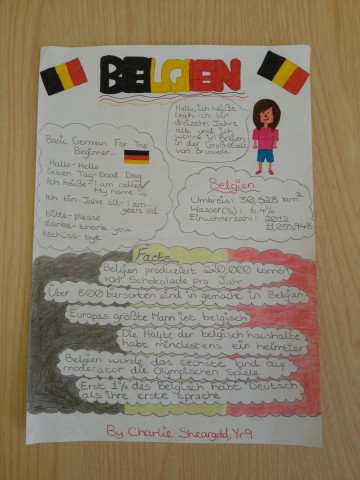 BELGIEN
Hallo, ich heiße
Leah, ich bin
dreizehn Jahre
alt und ich
wohne in Belgien
in der Großstadt
von Brussels
Basic German For The
Beginner...
Hallo - Hello
Guten Tag - Good Day
Ich heiße - I am called/
My name is
Ich bin... Jahr alt - I am...
years old
bitte - please
danke - thank you
tschüss - bye
Belgien
Umkreis: 30,528 km²
Wasser(%): 6.4%
Einwohnerzahl: 2012
11,035,948
Facts
Belgien produziert 220,000 tonnen
von Schokolade pro Jahr
Über 800 biersorten sind in gemacht in Belgien
Europas größte Mann ist belgisch
Die Hälfte der belgisch haushalte
habt mindestens ein heimtier
Belgien wurde das sechste land auf
moderator die Olympischen Spiele
Erst 1% des belgisch habt Deutsch
als ihre erste sprache
By Charlie Sheargold, Yr9